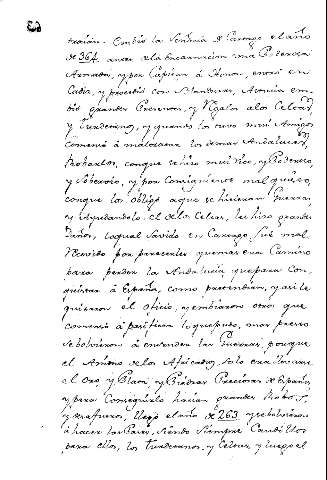 traición. Embio la Señoria de Cartago el año
de 364. antes de la Encarnacion una Poderosa
Armada, y por Capitan á Hanon, entró en
Cadiz, y procedió con Blandura, y
embió grandes Presentes, y Regalos a los Celtas,
y Turdetanos, y quando los tuvo mui Amigos
Comenzó á maltratar los demas Andaluces,
Robarlos, conque se hizo mui Rico, y Poderoso
y Sobervio, y por consiguiente mal quisto,
conque los obligó a que se hicieran Guerra,
y Ayudandole á él los Celtas, les hizo grandes
Daños, lo qual savido en Cartago fue mal
Recivido por parecerles que mas era Camino
para perder la Andalucia que para Con-
quistar á España, como pretendian, y asi le
quitaron el oficio, y embiaron otros que
comenzó á pacificar lo que pudo, mas presto
se bolvieron á encender las Guerras, porque
el Animo de los Africanos, solo era llevarse
el Oro, y Plata, y Piedras Preciosas de España,
y para Conseguirlo hacian grandes Robos,
y desafueros, llegó el año de 263 y se bolvieron
á hacer las Pazes, siendo siempre Caudillos
para ello, los Turdetanos, y Celtas, y luego el